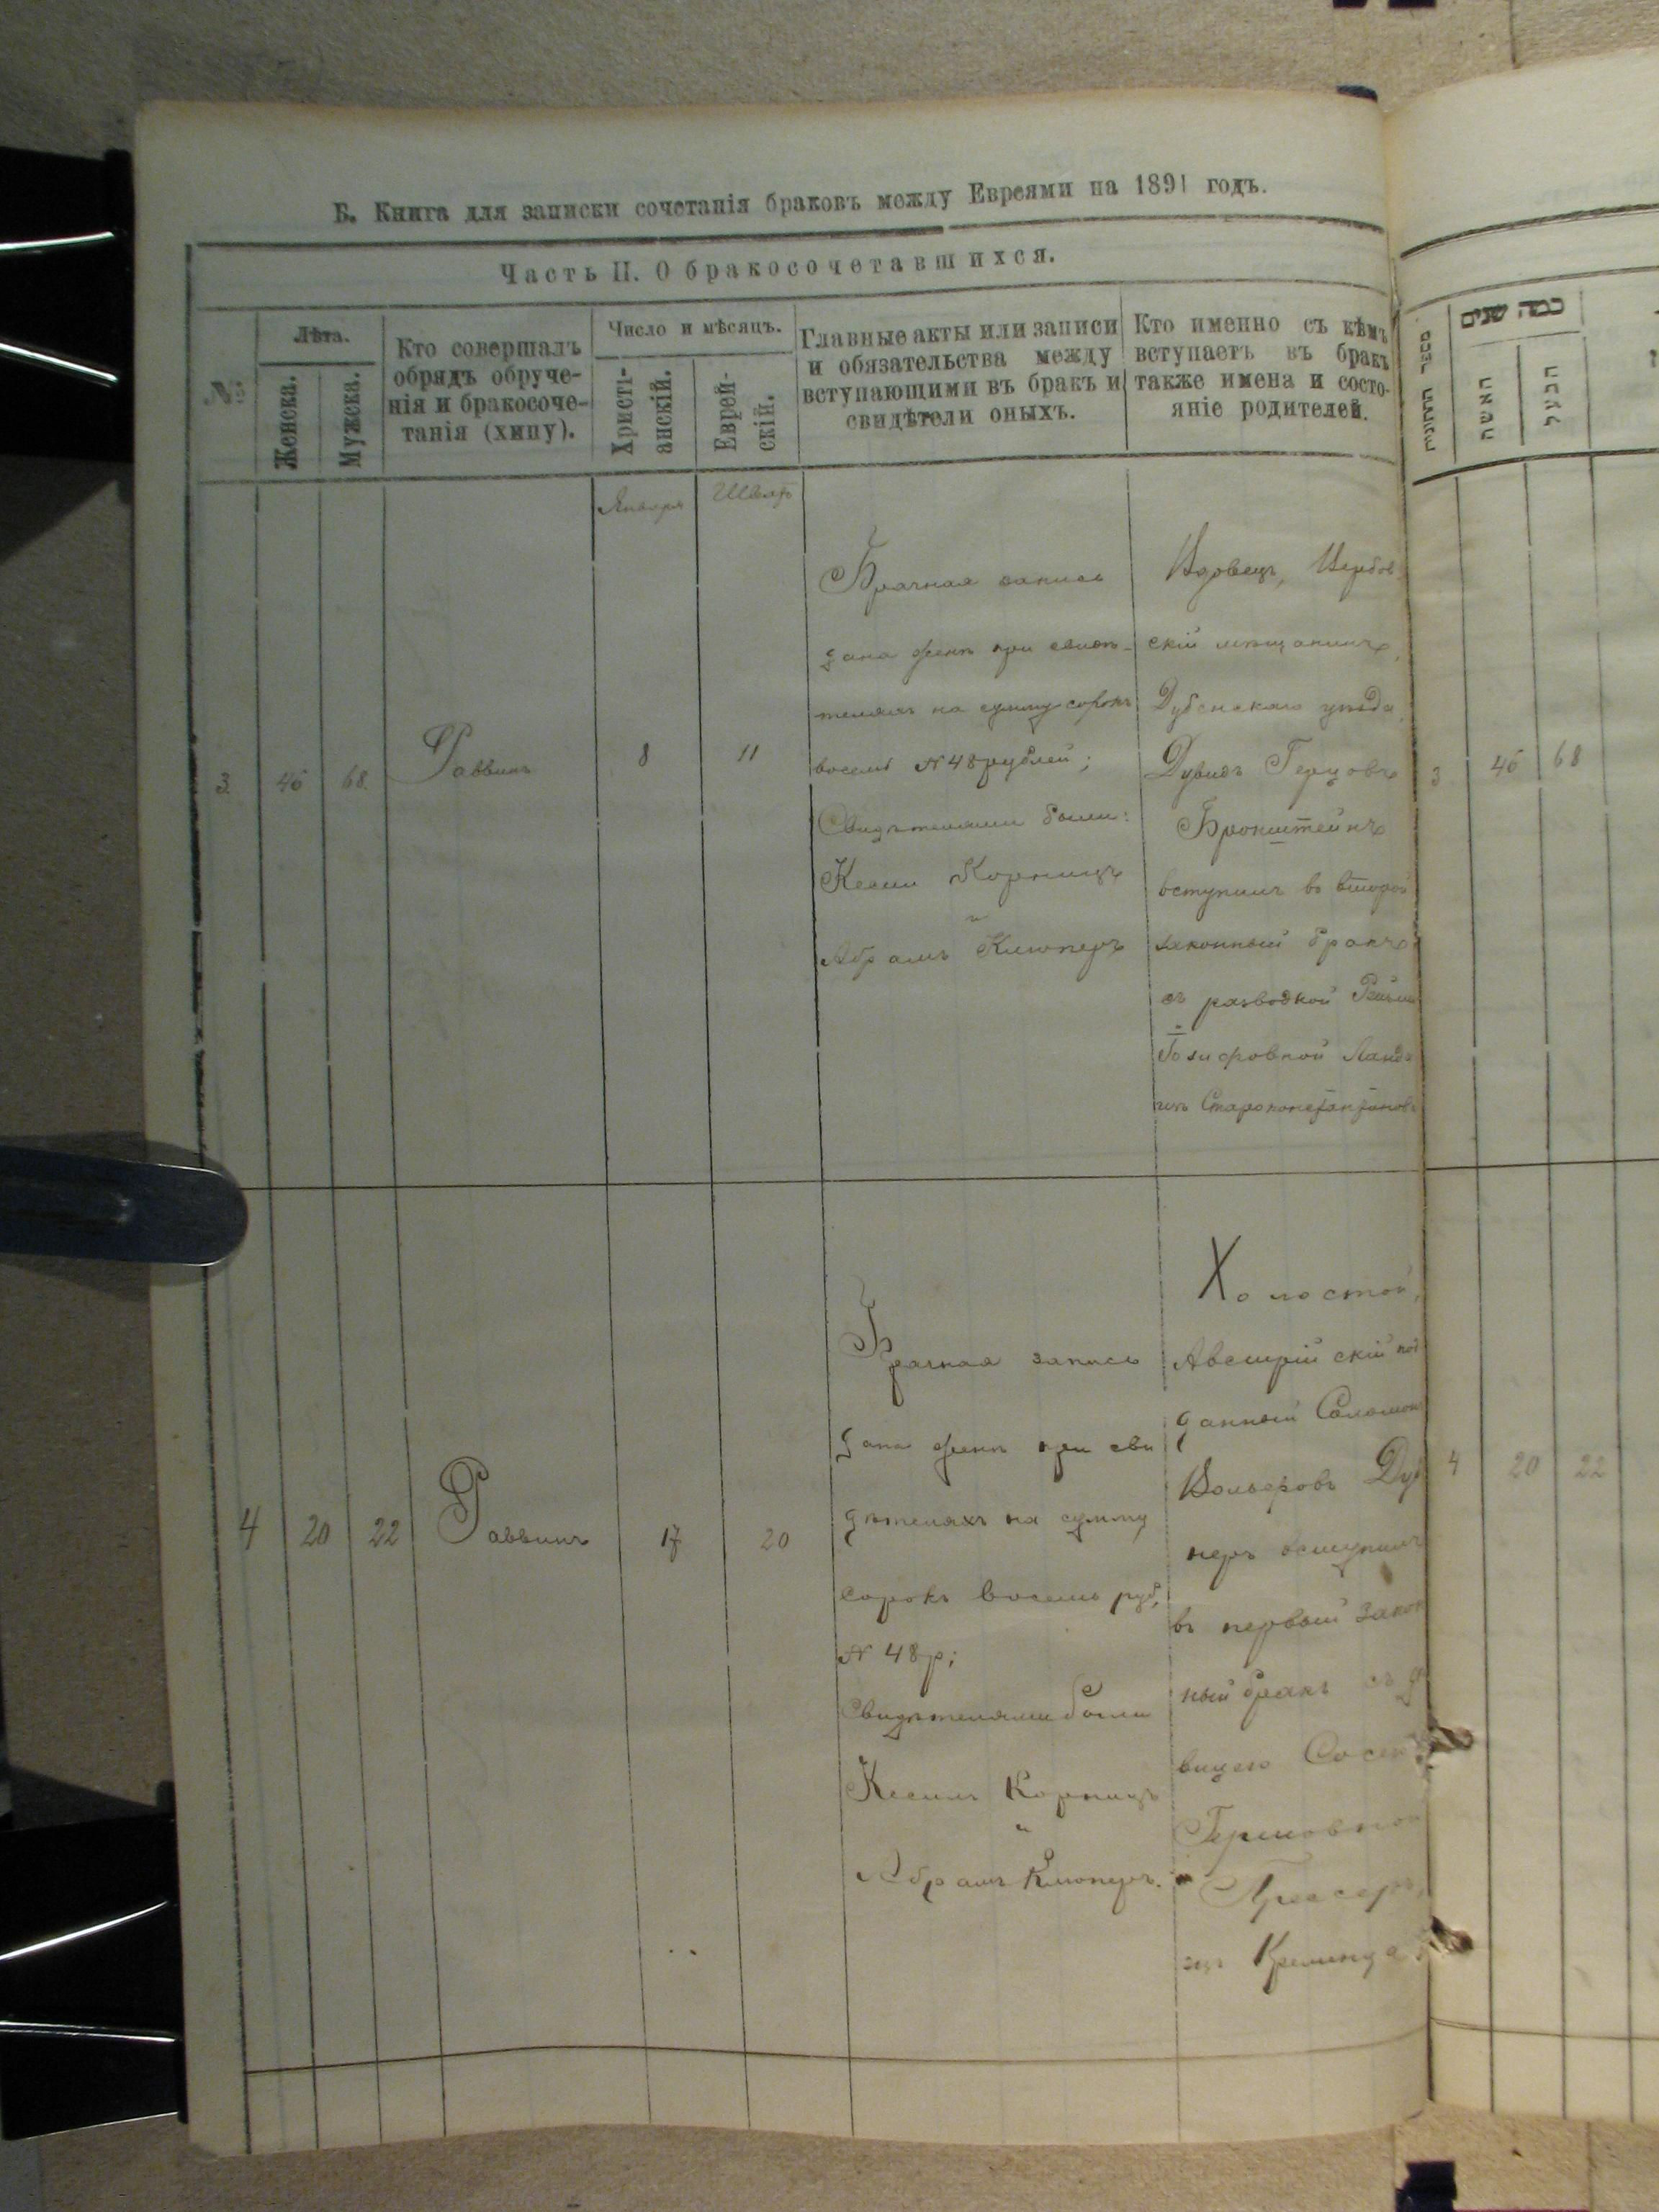 Б. Книга для записки сочетанія браковъ между Евреями на 1891 годъ.
Часть II. О бракосочетавшихся.
№
Лѣта.
Женска.
Мужска.
Кто совершалъ
обрядъ обруче-
нія и бракосоче-
танія (хипу).
Число и мѣсяцъ.
Христі-
анскій.
Еврей-
скій.
Главные акты или записи
и обязательства между
вступающими въ бракъ и
свидѣтели оныхъ.
Кто именно съ кѣмъ
вступаетъ въ бракъ
также имена и состо-
яніе родителей.
מספר החתונות
כמה שנים
האשה
הבעל
Января
Шватъ
3
46
68
Раввинъ
8
11
Брачная запись
дана женѣ при свидѣ-
теляхъ на сумму сорокъ
восемь № 48 рублей;
Свидѣтелями были:
Корницъ
и
Абрамъ Клюперъ
Вдовецъ, Вербов
скій мѣщанинъ,
Дубенскаго уѣзда,
Дувидъ Герцовъ
Бронштейнъ
вступилъ въ второй
законный бракъ
съ разводкой
Іозифовной
изъ Староконстантинов
3
46
68
4
20
22
Раввинъ
17
20
Брачная запись
дана женѣ при сви
дѣтеляхъ на сумму
сорокъ восемь руб.
№ 48 р;
Свидѣтелями были
Корницъ
и
Абрамъ Клюперъ.
Холостой,
Австрійскій под
данный Соломонъ
Вольфовъ
неръ вступилъ
въ первый закон
ный бракъ съ д
вицею
изъ
4
20
22